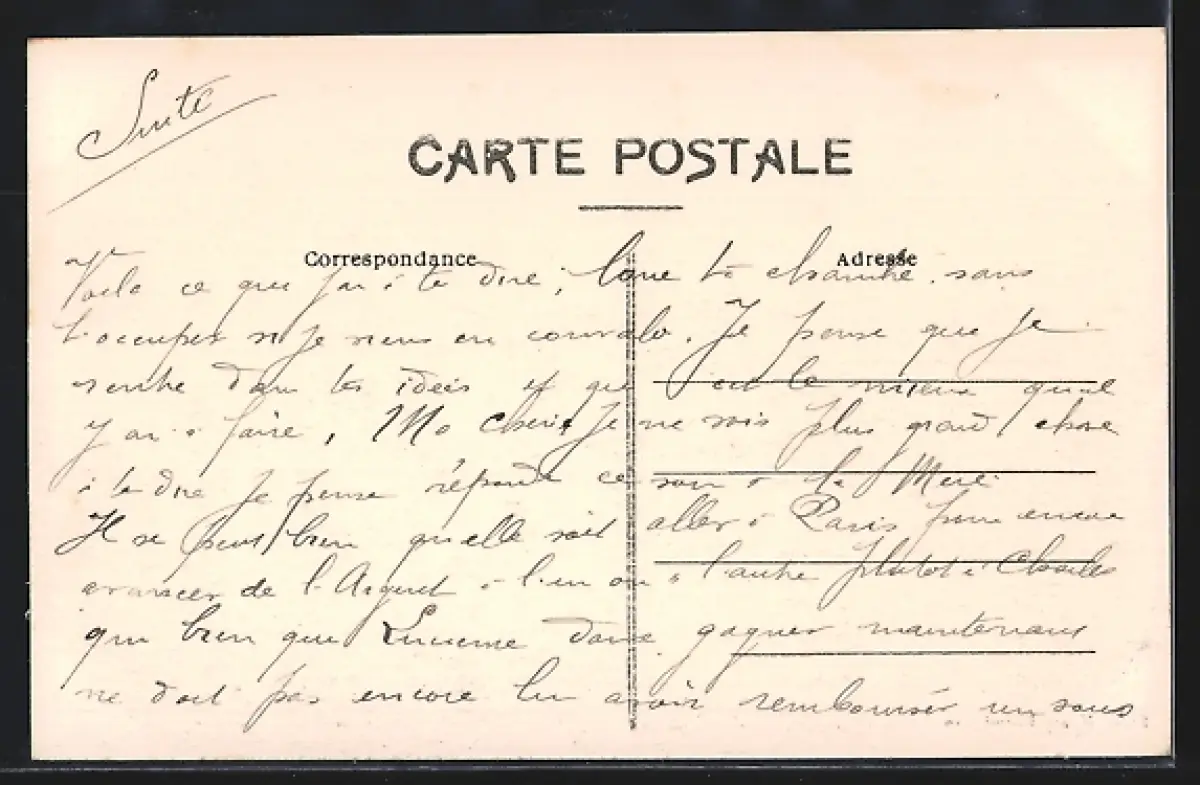 Suite
CARTE POSTALE
Correspondance
Adresse
Voila ce que j'ai à te dire, loue ta chambre sans
t'occuper si je viens en convalo. Je pense que je
rentre dans tes idées et que c'est le mieux qu'il
y ai à faire, Ma cherie je ne vois plus grand chose
à te dire je pense répondre ce soir à la Mère
Il se peut bien qu'elle soit aller à Paris pour encore
avancer de l'Argent à l'un ou à l'autre plutot à Charles
qui bien que Lucienne doive gagner maintenant
ne doit pas encore lui avoir rembourser un sous